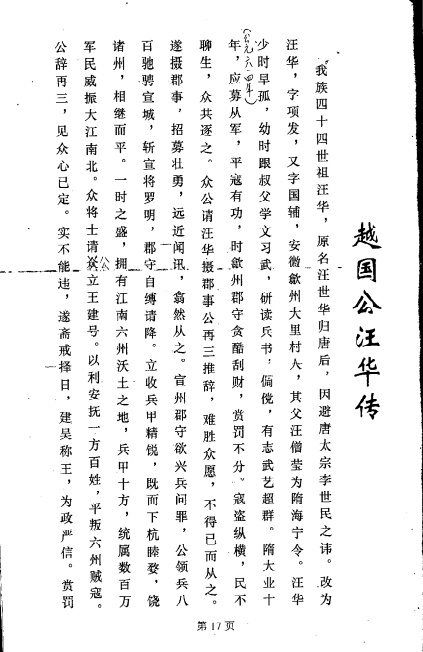 越国公汪华传
我族四十四世祖汪华，原名汪世华归唐后，因避唐太宗李世民之讳。改为
汪华，字项发，又字国辅，安微歙州大里村人，其父汪僧莹为隋海宁令。汪华
少时早孤，幼时跟叔父学文习武，研读兵书，倜傥，有志武艺超群。隋大业十
年，应募从军，平寇有功，时歙州郡守贪酷刮财，赏罚不分。寇盗纵横，民不
(公元六一四年)
聊生，众共逐之。众公请汪华摄郡事公再三推辞，难胜众愿，不得已而从之。
遂摄郡事，招募壮勇，远近闻讯，翕然从之。宣州郡守欲兴兵问罪，公领兵八
百驰骋宣城，斩宣将罗明，郡守自缚请降。立收兵甲精锐，既而下杭睦婺，饶
诸州，相继而平。一时之盛，拥有江南六州沃土之地，兵甲十方，统属数百万
军民威振大江南北。众将士请公立王建号。以利安抚一方百姓，平叛六州贼寇。
公辞再三，见众心已定。实不能违，遂斋戒择日，建吴称王，为政严信。赏罚
第17页